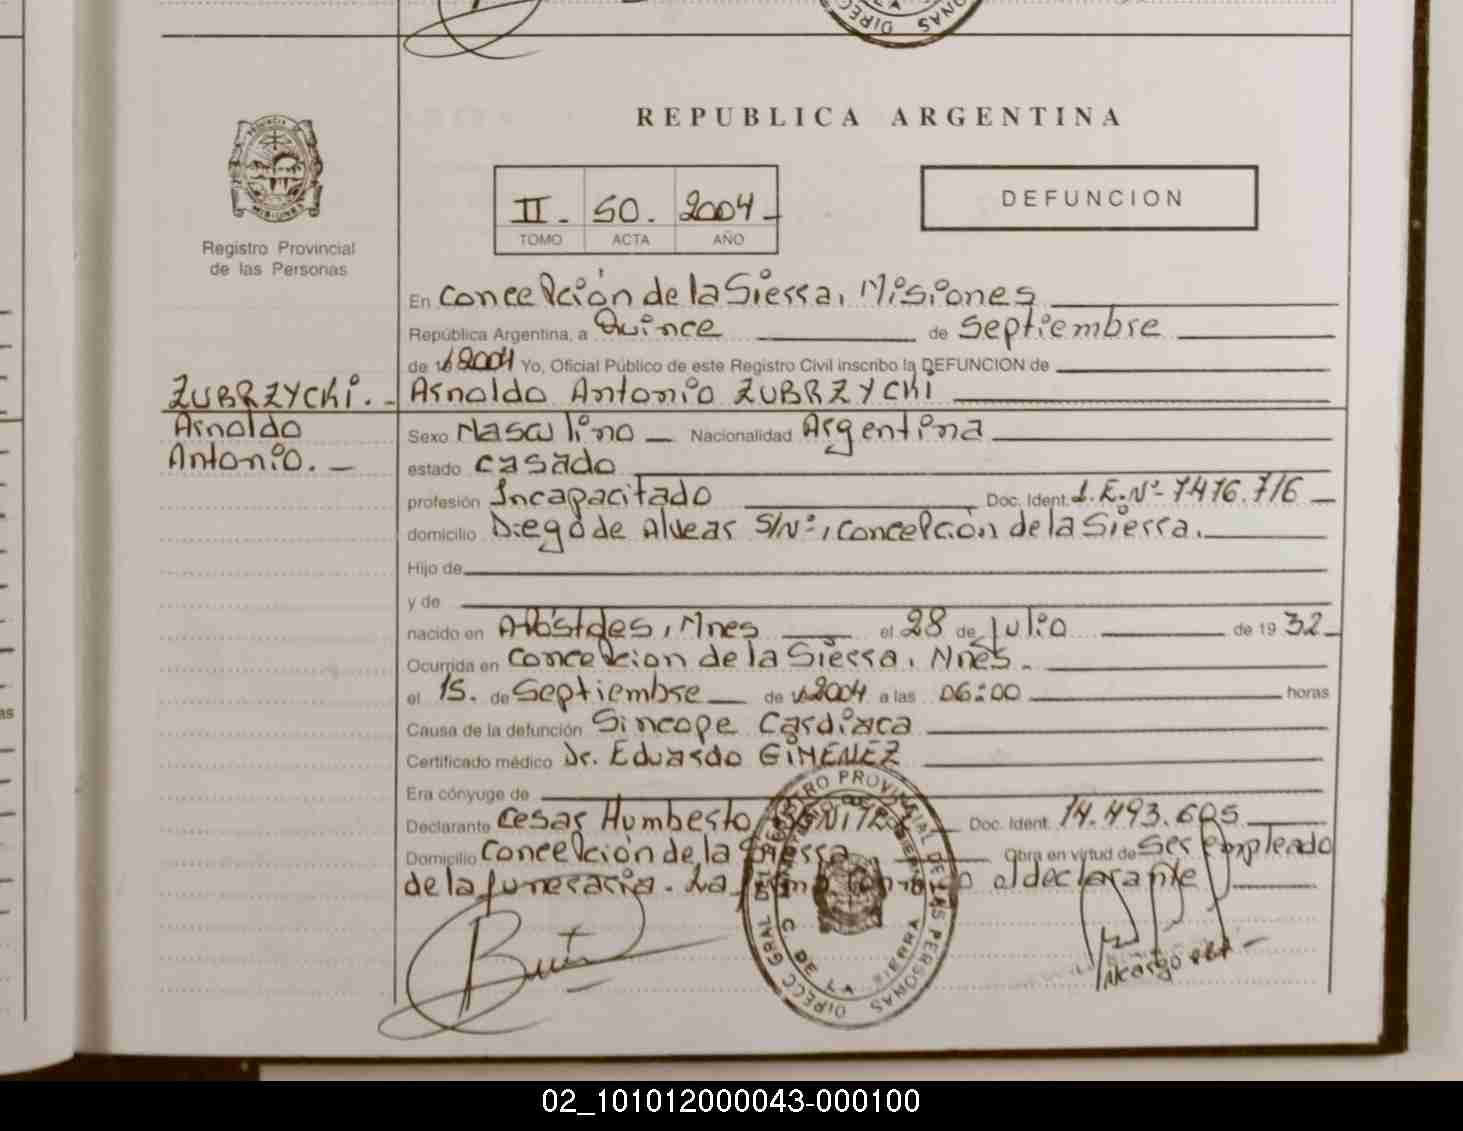 REPUBLICA ARGENTINA
II. 50. 2004
TOMO ACTA AÑO
DEFUNCION
Registro Provincial
de las Personas
En Concepción de la Sierra, Misiones
República Argentina, a Quince de Septiembre
de 2004 Yo, Oficial Público de este Registro Civil inscribo la DEFUNCION de
ZUBRZYCKI.
Arnoldo
Antonio.
Arnoldo Antonio ZUBRZYCKI
Sexo Masculino Nacionalidad Argentina
estado Casado
profesión Incapacitado Doc. Ident. L.E.Nº 7476.716
domicilio Diego de Alvear S/Nº, Concepción de la Sierra.
Hijo de
y de
nacido en Apóstoles, Mnes el 28 de julio de 19 32
Ocurrida en Concepcion de la Sierra, Mnes.
el 15. de Septiembre de 2004 a las 06:00 horas
Causa de la defunción Sincope Cardiaca
Certificado médico Dr. Eduardo GIMENEZ
Era cónyuge de
Declarante Cesar Humberto BENITEZ Doc. Ident. 14.493.605
Domicilio Concepción de la Sierra Obra en virtud de Ser Empleado
de la funeraria. La firma el declarante
02_101012000043-000100